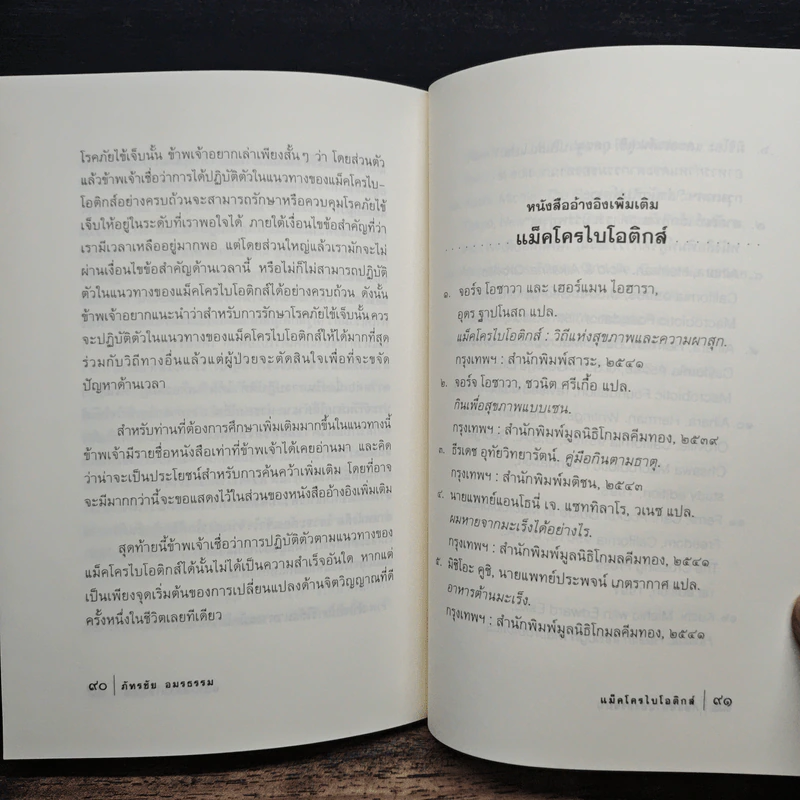 โรคภัยไข้เจ็บนั้น ข้าพเจ้าอยากเล่าเพียงสั้นๆ ว่า โดยส่วนตัว
แล้วข้าพเจ้าเชื่อว่าการได้ปฏิบัติตัวในแนวทางของแม็คโครไบ-
โอติกส์อย่างครบถ้วนจะสามารถรักษาหรือควบคุมโรคภัยไข้
เจ็บให้อยู่ในระดับที่เราพอใจได้ ภายใต้เงื่อนไขข้อสำคัญที่ว่า
เรามีเวลาเหลืออยู่มากพอ แต่โดยส่วนใหญ่แล้วเรามักจะไม่
ผ่านเงื่อนไขข้อสำคัญด้านเวลานี้ หรือไม่ก็ไม่สามารถปฏิบัติ
ตัวในแนวทางของแม็คโครไบโอติกส์ได้อย่างครบถ้วน ดังนั้น
ข้าพเจ้าอยากแนะนำว่าสำหรับการรักษาโรคภัยไข้เจ็บนั้น ควร
จะปฏิบัติตัวในแนวทางของแม็คโครไบโอติกส์ให้ได้มากที่สุด
ร่วมกับวิถีทางอื่นแล้วแต่ผู้ป่วยจะตัดสินใจเพื่อที่จะขจัด
ปัญหาด้านเวลา
สำหรับท่านที่ต้องการศึกษาเพิ่มเติมมากขึ้นในแนวทางนี้
ข้าพเจ้ามีรายชื่อหนังสือเท่าที่ข้าพเจ้าได้เคยอ่านมา และคิด
ว่าน่าจะเป็นประโยชน์สำหรับการค้นคว้าเพิ่มเติม โดยที่อาจ
จะมีมากกว่านี้จะขอแสดงไว้ในส่วนของหนังสืออ้างอิงเพิ่มเติม
สุดท้ายนี้ข้าพเจ้าเชื่อว่าการปฏิบัติตัวตามแนวทางของ
แม็คโครไบโอติกส์ได้นั้นไม่ได้เป็นความสำเร็จอันใด หากแต่
เป็นเพียงจุดเริ่มต้นของการเปลี่ยนแปลงด้านจิตวิญญาณที่ดี
ครั้งหนึ่งในชีวิตเลยทีเดียว
๙๐ | ภัทรชัย อมรธรรม
หนังสืออ้างอิงเพิ่มเติม
แม็คโครไบโอติกส์
๑. จอร์จ โอซาวา และ เฮอร์แมน ไอฮารา,
อุตร ฐาปโนสถ แปล.
แม็คโครไบโอติกส์ : วิถีแห่งสุขภาพและความผาสุก.
กรุงเทพฯ : สำนักพิมพ์สาระ, ๒๕๔๑
๒. จอร์จ โอซาวา, ชวนิต ศรีเกื้อ แปล.
กินเพื่อสุขภาพแบบเซน.
กรุงเทพฯ : สำนักพิมพ์มูลนิธิโกมลคีมทอง, ๒๕๓๙
๓. ธีรเดช อุทัยวิทยารัตน์. คู่มือกินตามธาตุ.
กรุงเทพฯ : สำนักพิมพ์มติชน, ๒๕๔๓
๔. นายแพทย์แอนโธนี่ เจ. แซททิลาโร, วเนช แปล.
ผมหายจากมะเร็งได้อย่างไร.
กรุงเทพฯ : สำนักพิมพ์มูลนิธิโกมลคีมทอง, ๒๕๔๑
๕. มิชิโอะ คูชิ, นายแพทย์ประพจน์ เภตรากาศ แปล.
อาหารต้านมะเร็ง.
กรุงเทพฯ : สำนักพิมพ์มูลนิธิโกมลคีมทอง, ๒๕๔๑
แม็คโครไบโอติกส์ | ๙๑